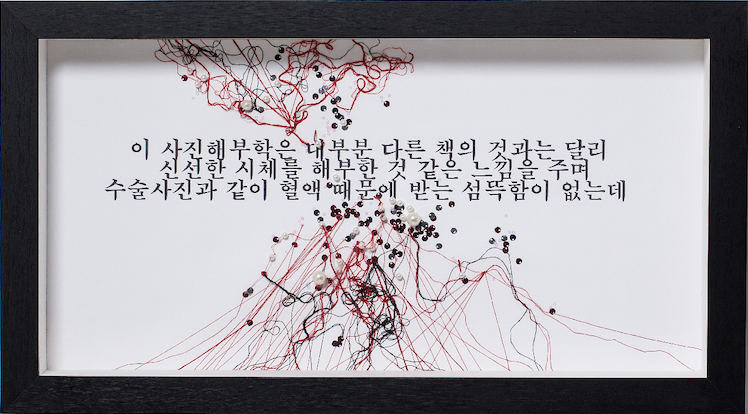 이 사진해부학은 대부분 다른 책의 것과는 달리
신선한 시체를 해부한 것 같은 느낌을 주며
수술사진과 같이 혈액 때문에 받는 섬뜩함이 없는데